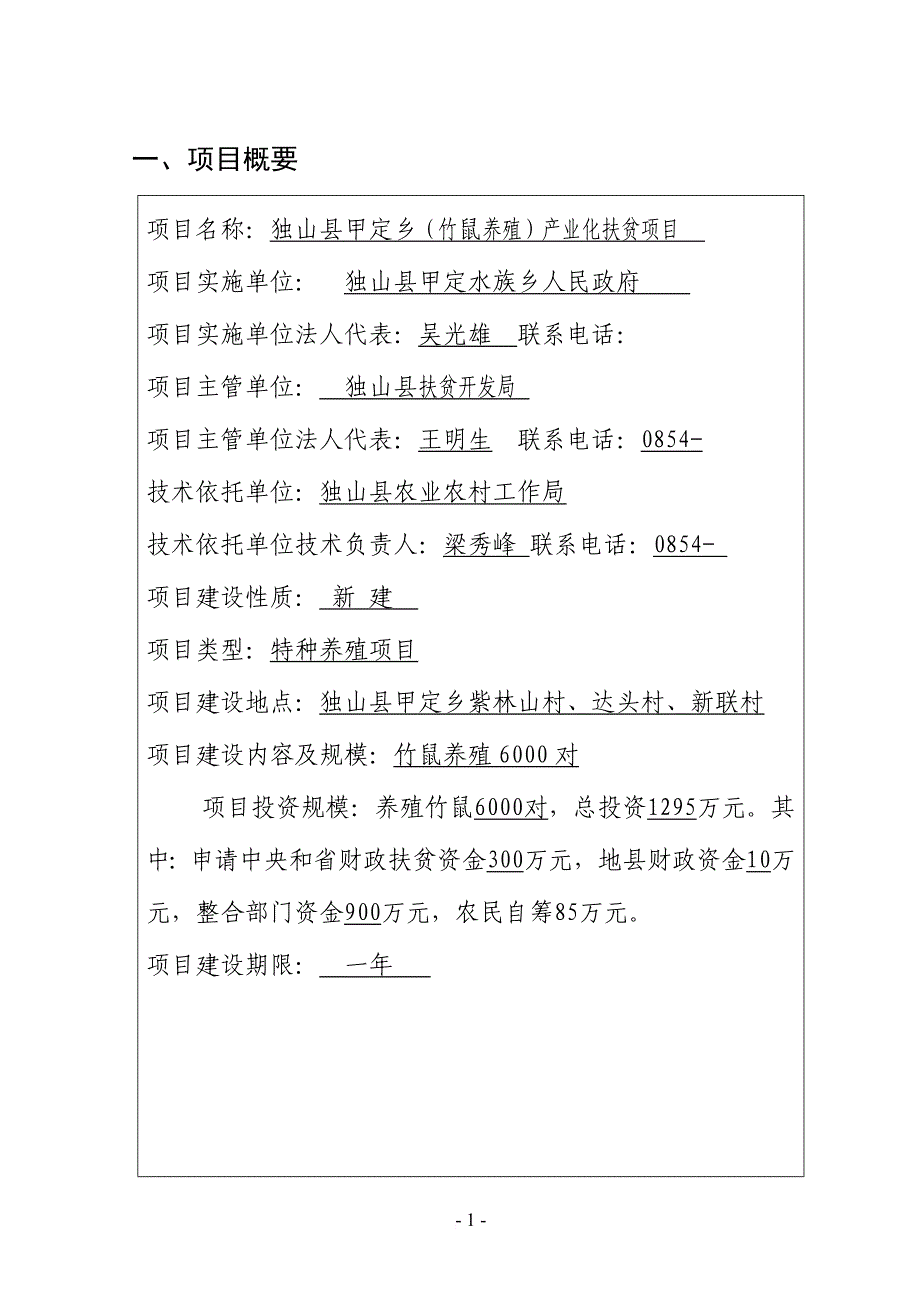 一、项目概要
项目名称：独山县甲定乡（竹鼠养殖）产业化扶贫项目
项目实施单位： 独山县甲定水族乡人民政府
项目实施单位法人代表：吴光雄 联系电话：
项目主管单位： 独山县扶贫开发局
项目主管单位法人代表：王明生 联系电话：0854-
技术依托单位：独山县农业农村工作局
技术依托单位技术负责人：梁秀峰 联系电话：0854-
项目建设性质： 新 建
项目类型：特种养殖项目
项目建设地点：独山县甲定乡紫林山村、达头村、新联村
项目建设内容及规模：竹鼠养殖 6000 对
项目投资规模：养殖竹鼠6000对，总投资1295万元。其
中：申请中央和省财政扶贫资金300万元，地县财政资金10万
元，整合部门资金900万元，农民自筹85万元。
项目建设期限： 一年
- 1 -